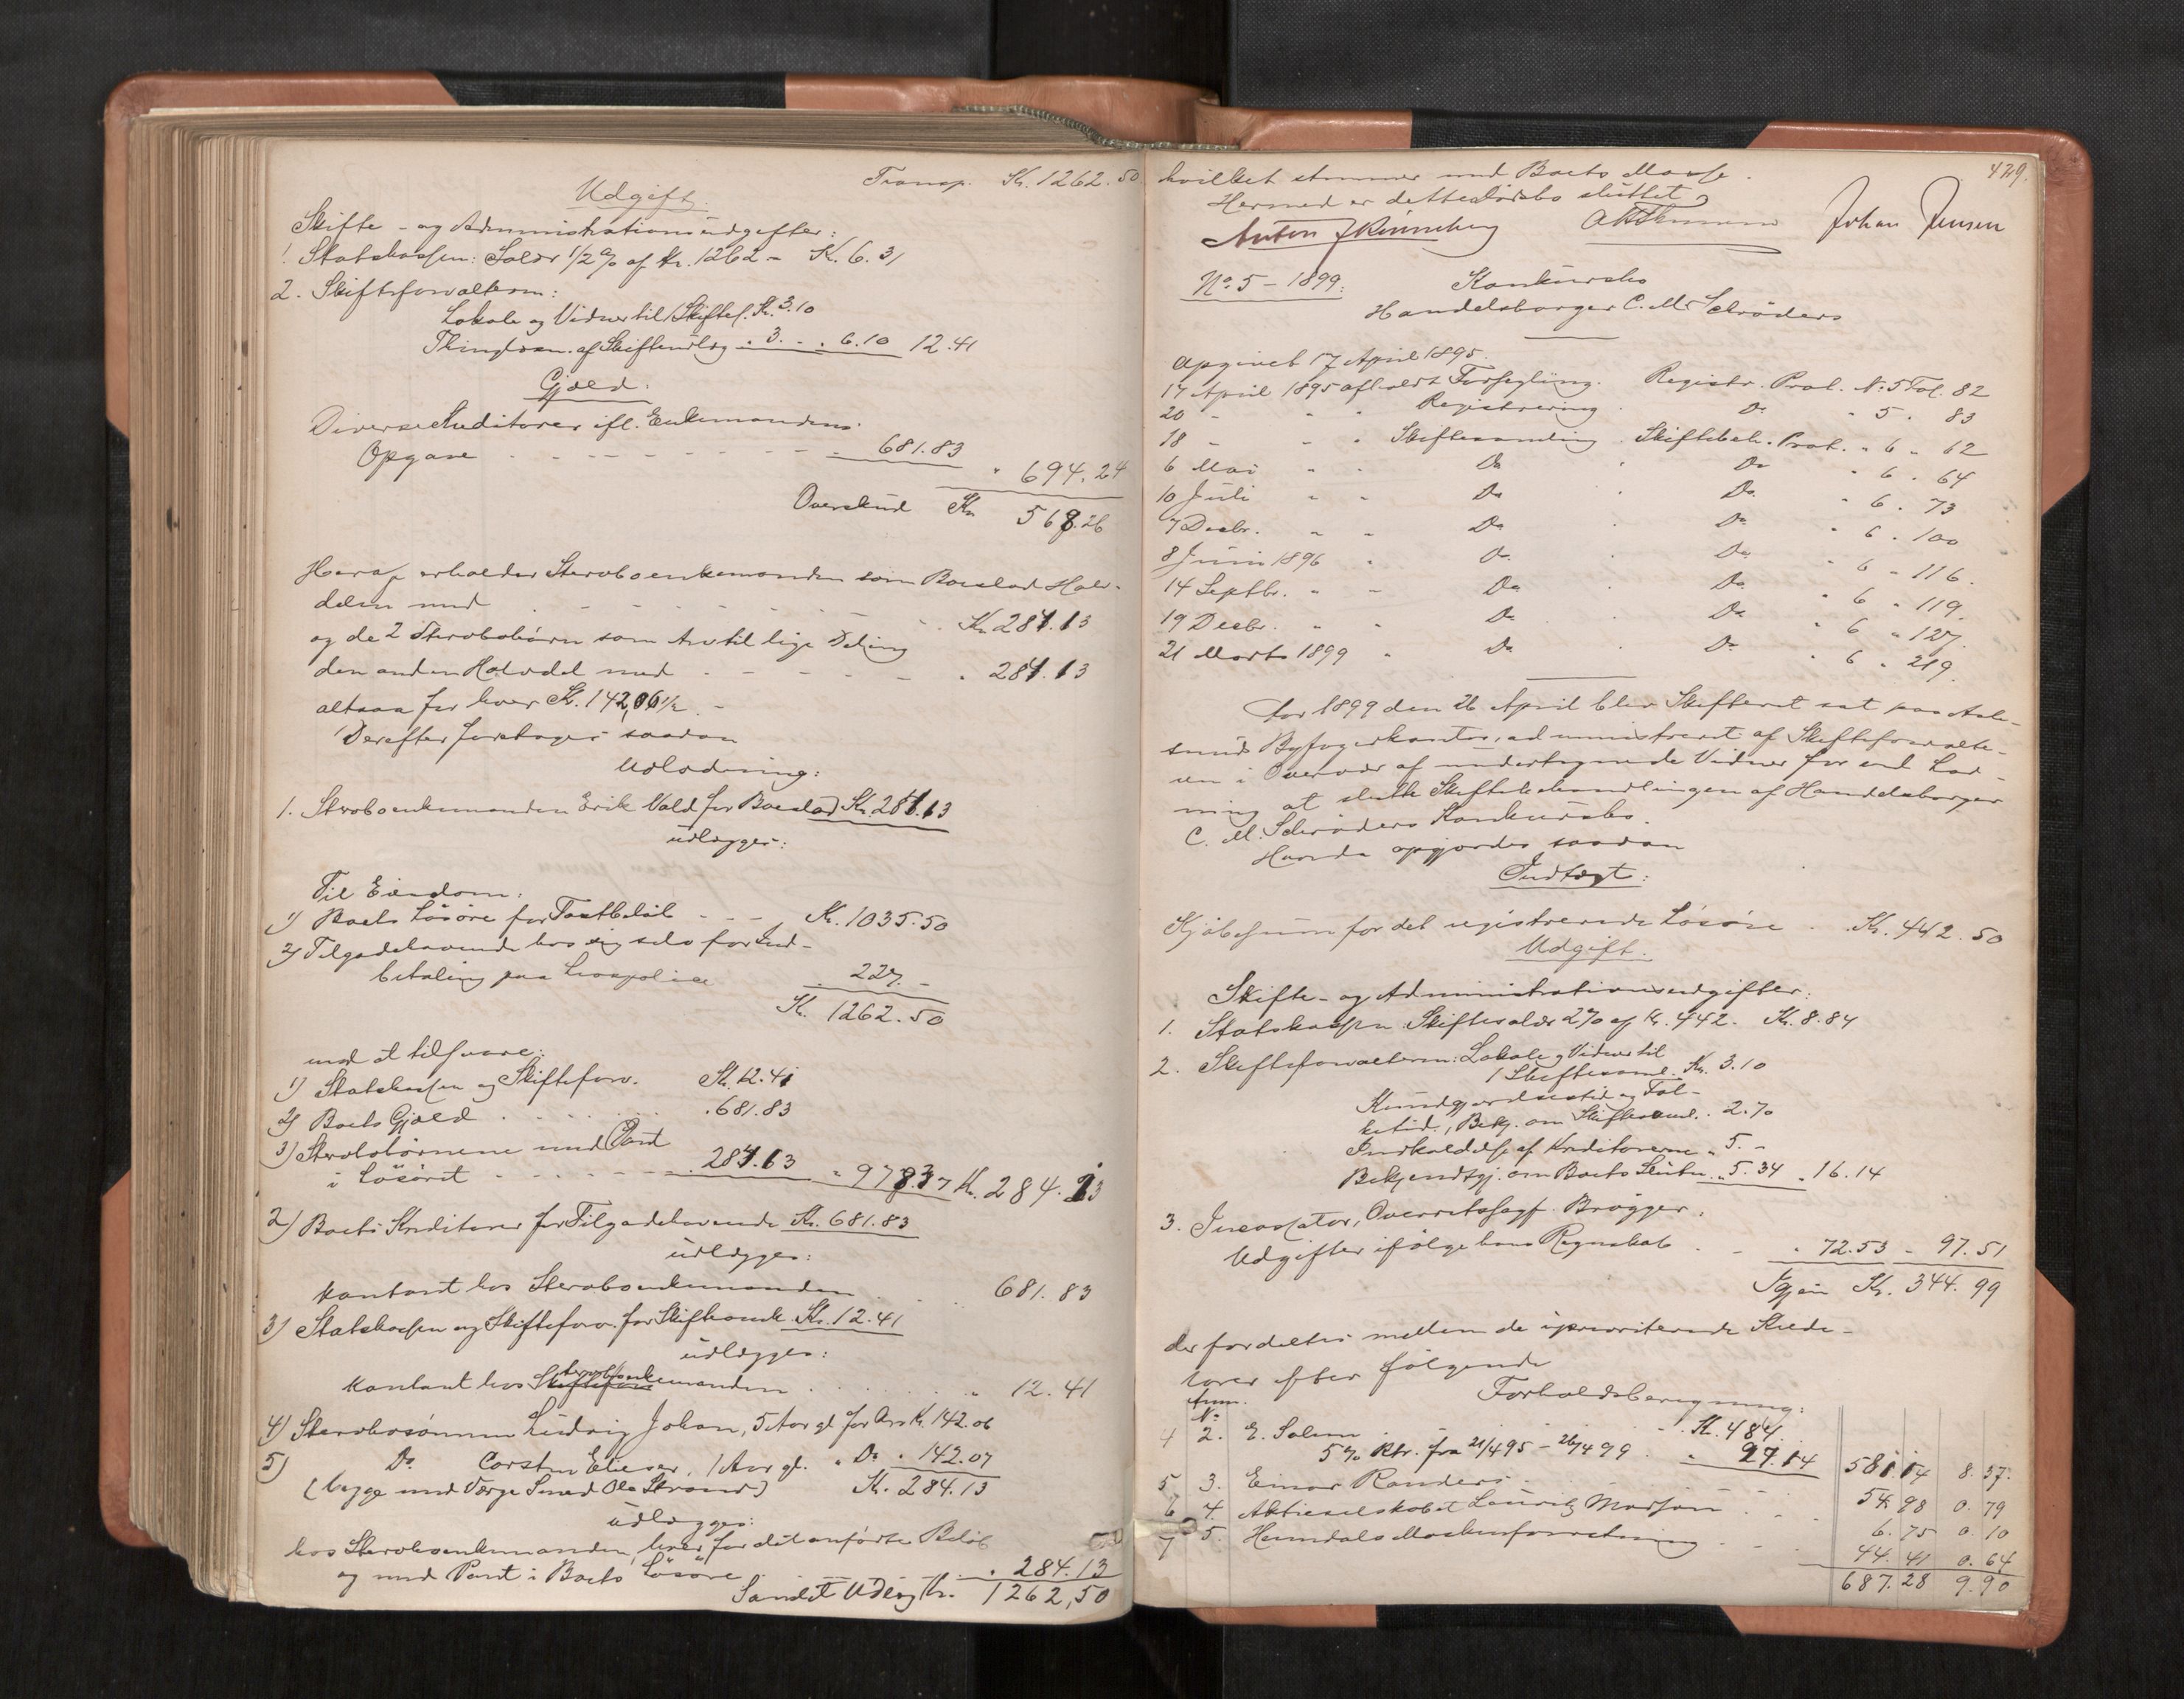 Transp. Kr. 1262.50
Udgift.
Skifte- og Administrationsudgifter:
1. Statskassen: Salær 1/2 % af Kr. 1262 - K. 6.31
2. Skifteforvalteren:
Lokale og Vidner til 1 Skiftes. Kr. 3.10
Thinglæsn. af Skifteudlæg " 3. - " 6.10 12.41
Gjæld.
Diverse Kreditorer ifl. Enkemandens
Opgave - - - - 681.83
" 694.24
Overskud Kr. 568.26
Heraf erholder Sterboenkemanden som Boeslod Halv-
delen med - - - - Kr. 284.13
og de 2 Sterbobørn som Arv til lige Deling
den anden Halvdel med - - - - " 284.13
altsaa for hver Kr. 142,06 1/2 -
Derefter foretages saadan
Udlodning:
1. Sterboenkemanden Erik Vold for Boeslod Kr. 284.13
udlægges:
Til Eiendom:
1) Boets Løsøre for Taxtbeløb - - - Kr. 1035.50
2) Tilgodehavende hos sig selv for Ind-
betaling paa Livspolice " 227. -
Kr. 1262.50
mod at tilsvare:
1) Statskassen og Skifteforv. Kr. 12.41
2) Boets Gjæld . . . . " 681.83
3) Sterbobørnene med Pant
i Løsøret - - - - " 284.13 " 978.37 Kr. 284.13
2) Boets Kreditorer for Tilgodehavende Kr. 681.83
udlægges:
kontant hos Sterboenkemanden . . . 681.83
3) Statskassen og Skifteforv. for Skifteomk. Kr. 12.41
udlægges:
kontant hos Sterboenkemanden . . . . " 12.41
4) Sterbosønnen Ludvig Johan, 5 Aar gl. for Arv Kr. 142.06
5) Do Carsten Elieser, 1 Aar gl. " Do " 142.07
(begge med Værge Smed Ole Strand) Kr. 284.13
udlægges:
hos Sterboenkemanden, hver for det anførte Beløb
og med Pant i Boets Løsøre . . . " 284.13
Samlet Udlæg Kr. 1262,50
429.
hvilket stemmer med Boets Masse.
Hermed er dette Dødsbo sluttet
Anton Johan Jensen
No 5 - 1899:
Konkursbo
Handelsborger C. M. Schrøders
Opgivet 17 April 1895.
17 April 1895 afholdt Forsegling. Registr. Prot. No 5 Fol. 82
20 - " " Registrering . Do " 5 " 83
18 - " " Skiftesamling . Skiftebeh. Prot. " 6 " 62
6 Mai " " Do . Do " 6 " 64
10 Juli " " Do . Do " 6 " 73
7 Decbr. " " Do . Do " 6 " 100
8 Juni 1896 " Do . Do " 6 " 116.
14 Septbr. " " Do . Do " 6 " 119.
19 Decbr. " " Do . Do " 6 " 127.
21 Marts 1899 " Do . Do " 6 " 219.
Aar 1899 den 26 April blev Skifteret sat paa Aale-
sunds Byfogedkontor, administreret af Skifteforvalte-
ren i Overvær af undertegnede Vidner for ved Lod-
ning at slutte Skiftebehandlingen af Handelsborger
C. M. Schrøders Konkursbo.
Hvorda opgjordes saadan
Indtægt:
Kjøbesum for det registrerede Løsøre . Kr. 442.50
Udgift.
Skifte- og Administrationsudgifter:
1. Statskassen: Skiftesalær 2 % af Kr. 442. Kr. 8.84
2. Skifteforvalteren: Lokale og Vidner til
1 Skiftesaml. Kr. 3.10
Kundgjørelsestid. og Aal-
tid., Bekj. om Skiftesaml. " 2.70
Indkaldelse af Kreditorerne " 5. -
Bekjendtgj. om Boets Slutn. " 5.34 " 16.14
3. Incassator, Overretssagf. Brøgger.
Udgifter ifølge hans Regnskab . - " 72.53 - 97.51
Igjen Kr. 344.99
der fordeltes mellem de uprioriterede Kredi-
torer efter følgende
Forholdsberegning:
Anm.
No
4 2. E. Solem . . . Kr. 484.
5 % Rtr. fra 21/4 95 - 26/4 99 . " 97.14 581.14 8.37.
5 3. Einar Randers . 54.98 0.79
6 4. Aktieselskabet Lauritz 6.75 0.10
7 5. Heimdals Maskinforretning . . . 44.41 0.64
687.28 9.90